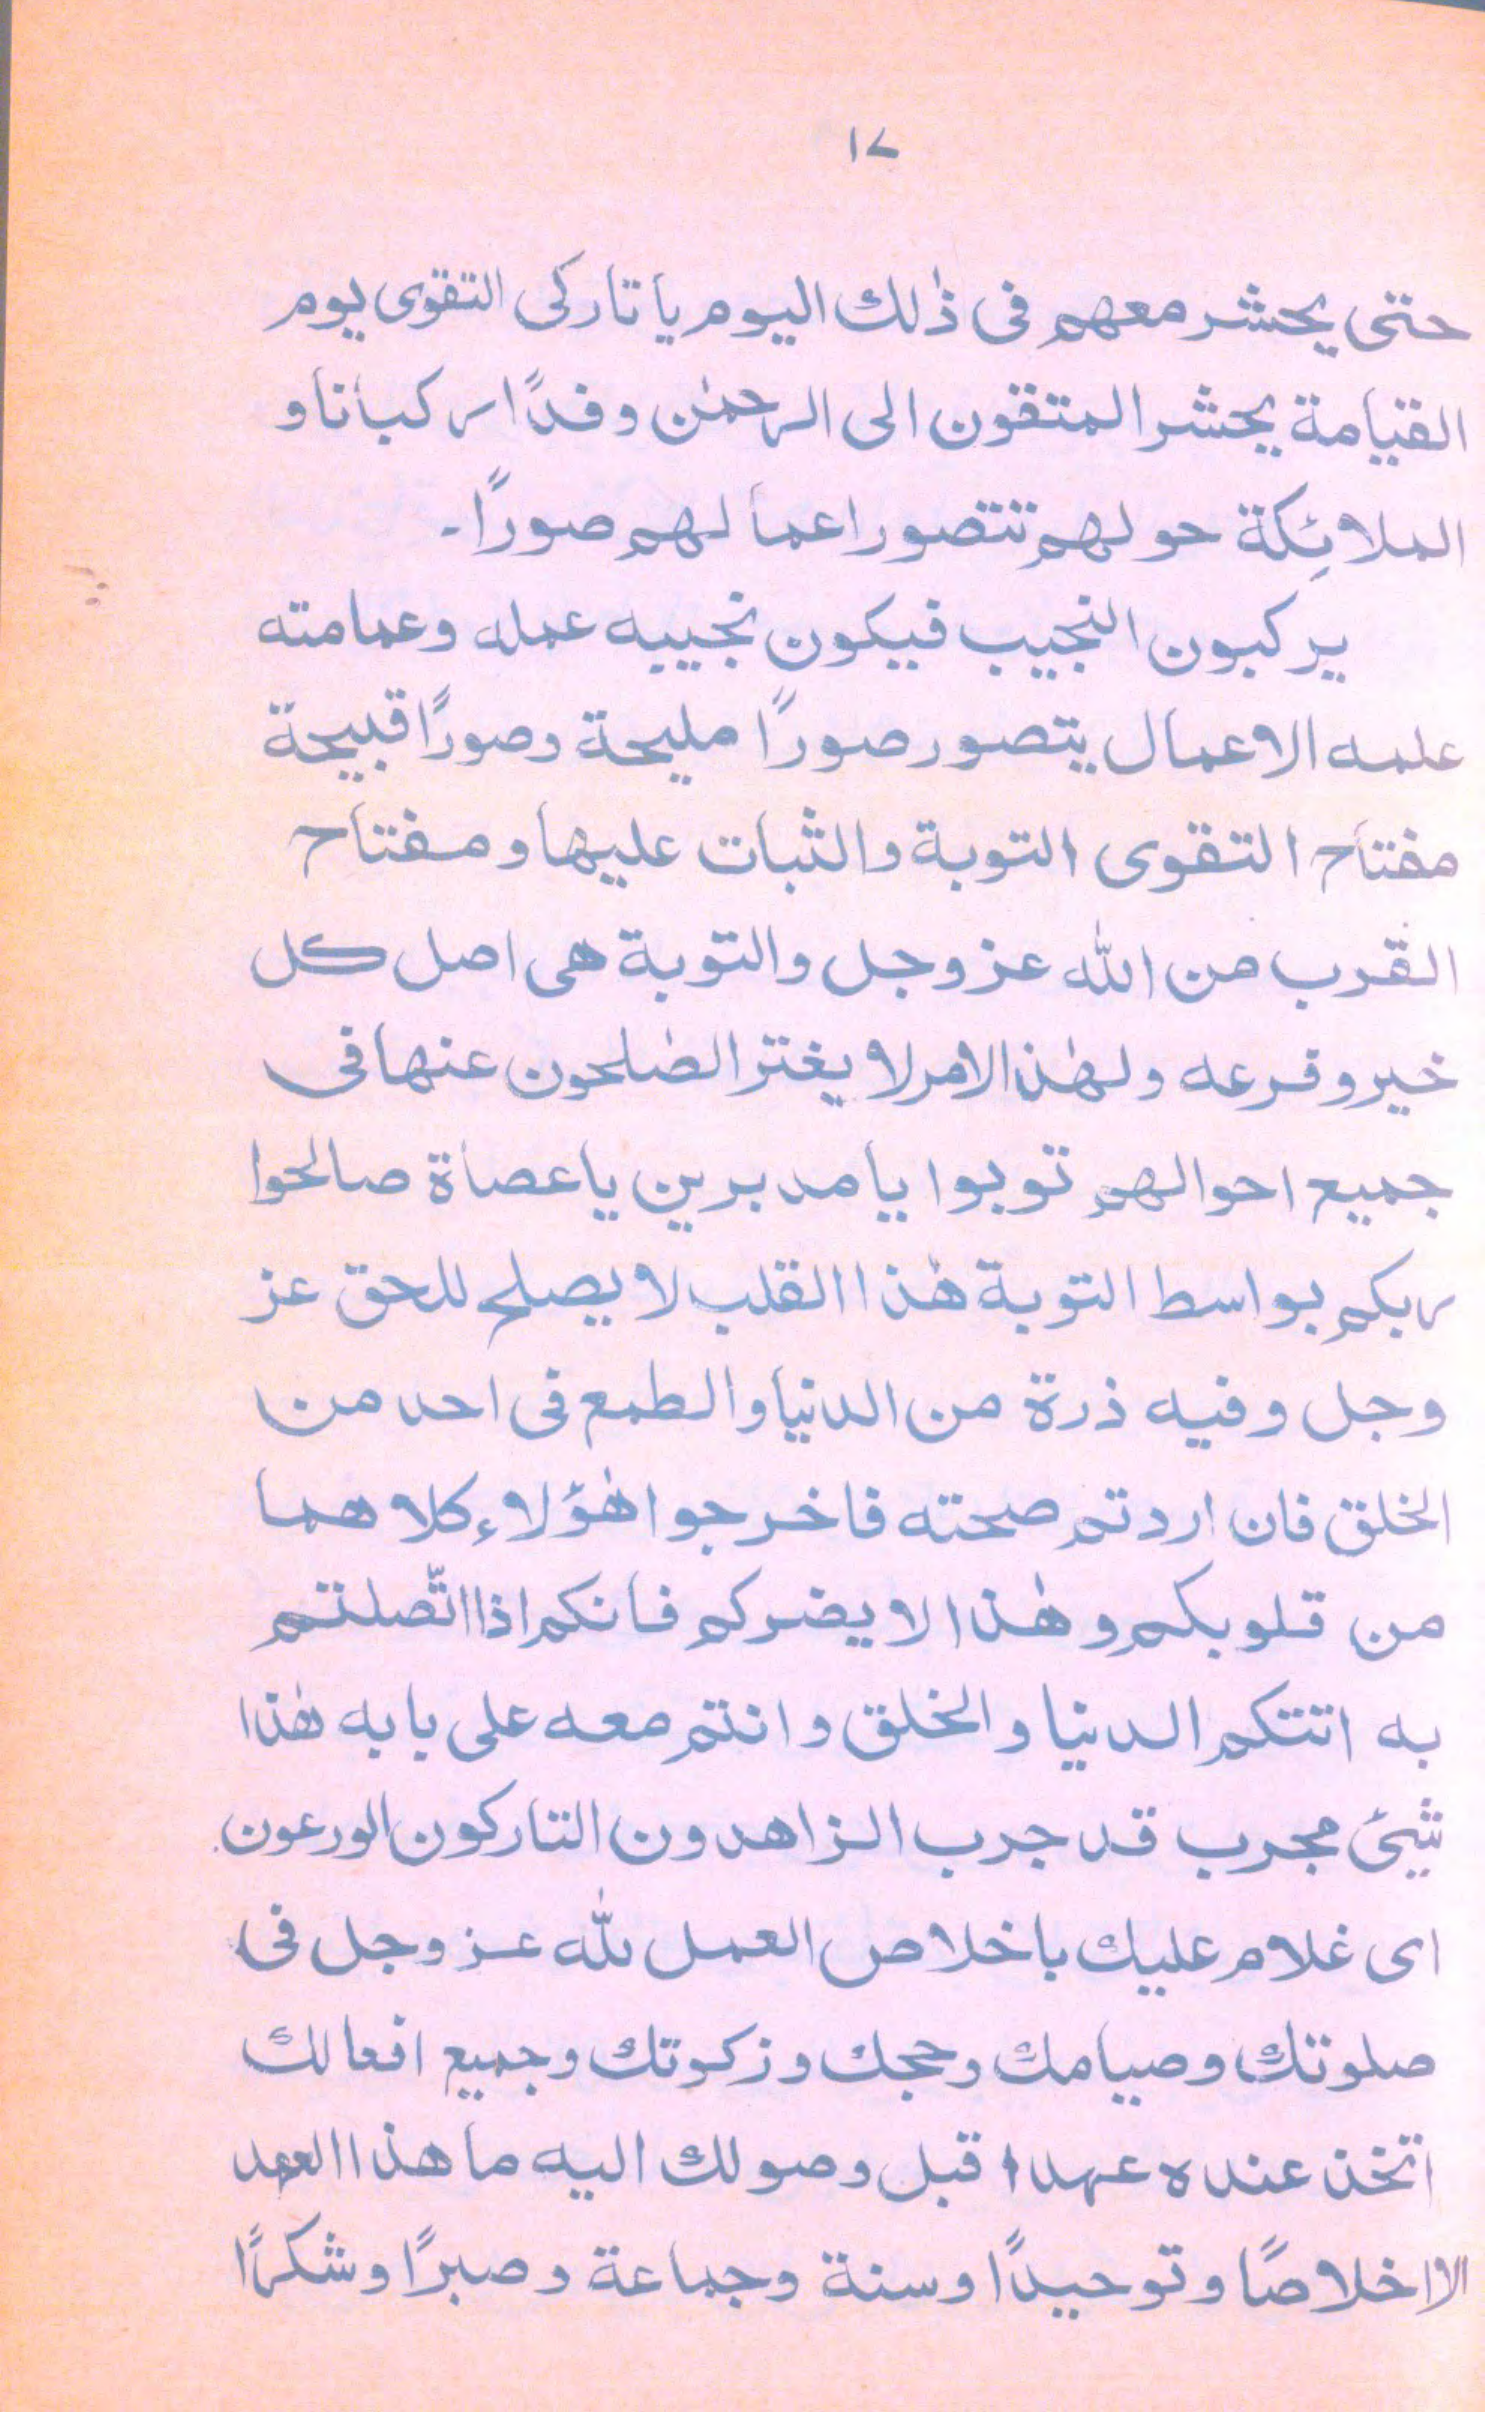 ١٧
حتى يحشر معهم فى ذٰلك اليوم يا تاركى التقوى يوم
القيامة يحشر المتقون الى الرحمٰن وفدًا ركبانا و
الملائِكة حولهم تتصور اعمالهم صورًا۔
يركبون النجيب فيكون نجيبه عمله وعمامته
علمه الاعمال يتصور صورًا مليحة وصورًا قبيحة
مفتاح التقوى التوبة والثبات عليها ومفتاح
القرب من الله عز وجل والتوبة هى اصل كل
خير وفرعه ولهٰذا الامر لا يغتر الصٰلحون عنها فى
جميع احوالهم توبوا يا مدبرين يا عصاة صالحوا
ربكم بواسط التوبة هٰذا القلب لا يصلح للحق عز
وجل وفيه ذرة من الدنيا والطمع فى احد من
الخلق فان اردتم صحته فاخرجوا هٰؤلاء كلاهما
من قلوبكم وهٰذا لا يضركم فانكم اذا اتّصلتم
به اتتكم الدنيا والخلق وانتم معه على بابه هٰذا
شيئ مجرب قد جرب الزاهدون التاركون الورعون
اى غلام عليك باخلاص العمل لله عز وجل فى
صلوتك وصيامك وحجك وزكوتك وجميع افعالك
اتخذ عنده عهدا قبل وصولك اليه ما هذا العهد
الا اخلاصًا وتوحيدًا وسنة وجماعة وصبرًا وشكرًا